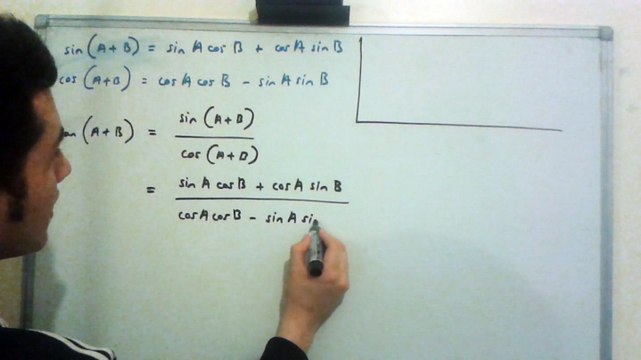 sin (A + B) = sin A cos B + cos A sin B
cos (A+B) = cos A cos B - sin A sin B
an (A + B) = sin (A+B)
cos (A+B)
= sin A cos B + cos A sin B
cos A cos B - sin A si